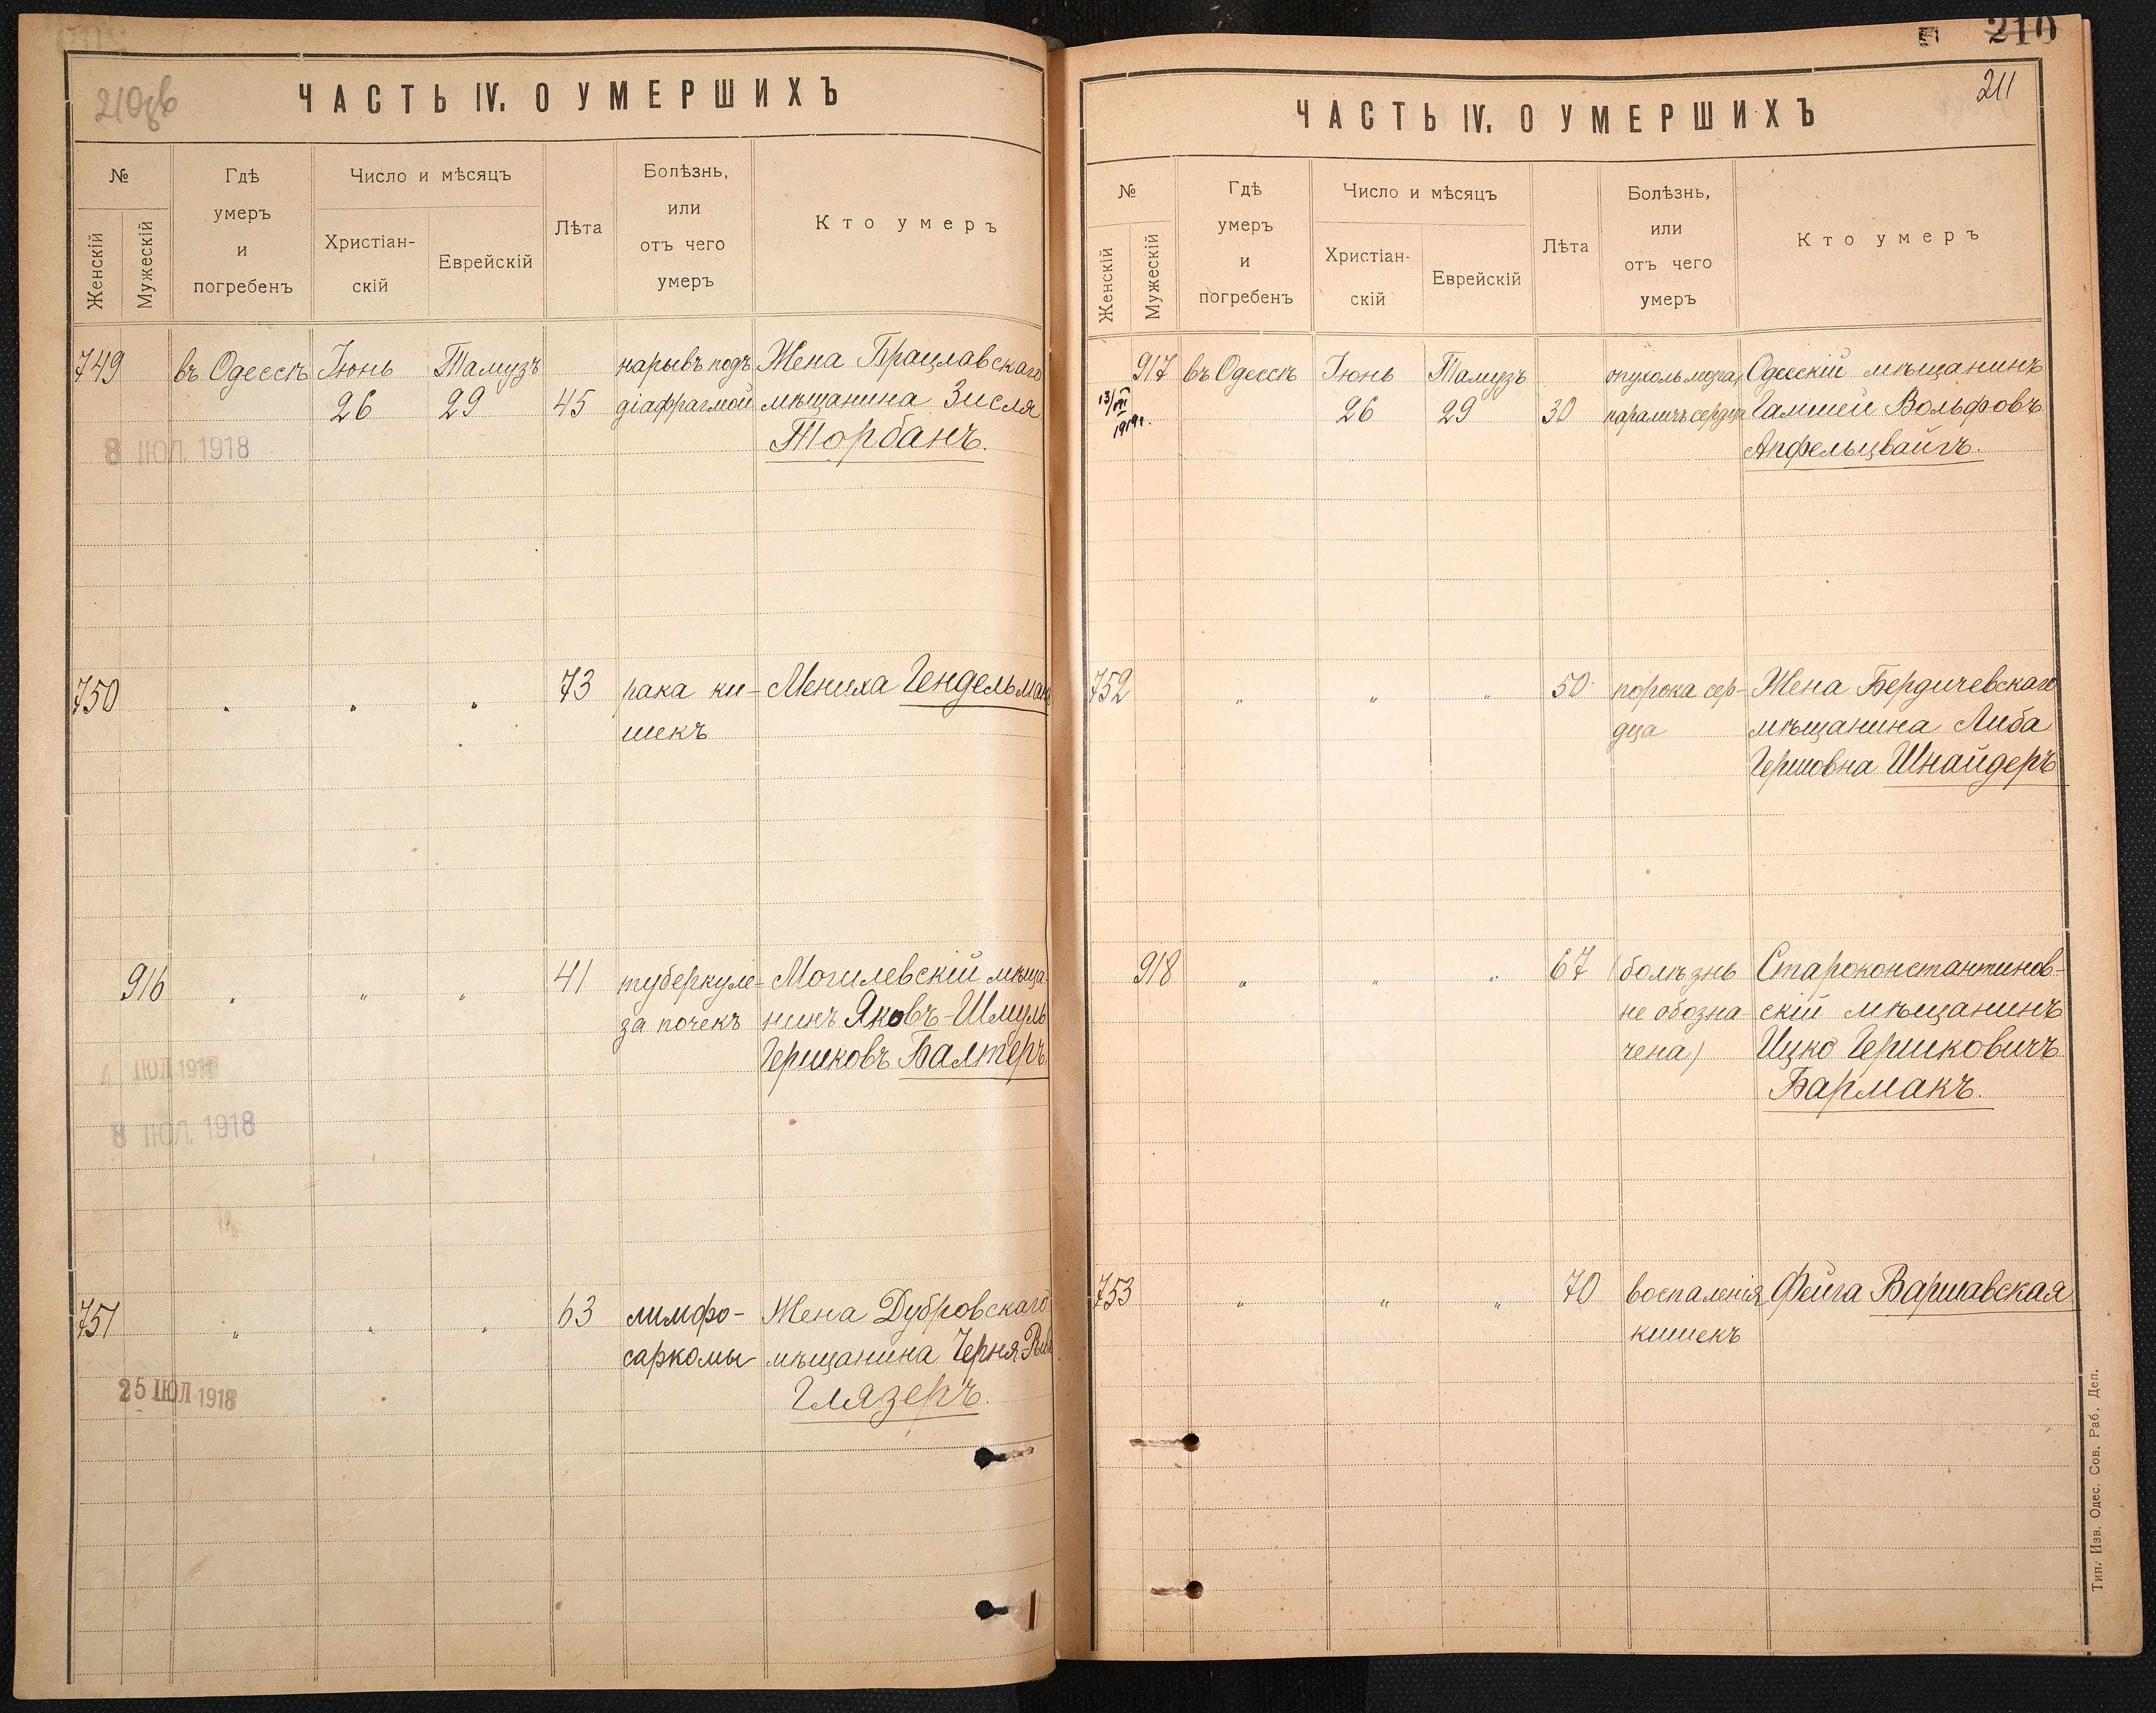 210об
ЧАСТЬ IV. О УМЕРШИХЪ
№
Женскій
Мужескій
Гдѣ
умеръ
и
погребенъ
Число и мѣсяцъ
Христіан-
скій
Еврейскій
Лѣта
Болѣзнь,
или
отъ чего
умеръ
Кто умеръ
749 въ Одессѣ Іюнь Тамузъ нарывъ подъ Жена Брацлавскаго
26 29 45 діафрагмой мѣщанина Зисля
Торбанъ.
8 ІЮЛ. 1918
750 „ „ „ 73 рака ки- Мениха Гендельман
шекъ
916 „ „ „ 41 туберкуле- Могилевскій мѣща-
за почекъ нинъ Яковъ-Шмуль
Гершковъ Балтеръ
ІЮЛ 1918
8 ІЮЛ. 1918
751 „ „ „ 63 лимфо- Жена Дубровскаго
саркомы мѣщанина Черня
Глязеръ.
25 ІЮЛ 1918
210
211
ЧАСТЬ IV. О УМЕРШИХЪ
№
Женскій
Мужескій
Гдѣ
умеръ
и
погребенъ
Число и мѣсяцъ
Христіан-
скій
Еврейскій
Лѣта
Болѣзнь,
или
отъ чего
умеръ
Кто умеръ
917 въ Одессѣ Іюнь Тамузъ опухоль мозга, Одесскій мѣщанинъ
26 29 30 параличъ сердца Гамшей Вольфовъ
Апфельцвайгъ.
13/III
1919г.
752 „ „ „ 50 порока сер- Жена Бердичевскаго
дца мѣщанина Либа
Гершовна Шнайдеръ
918 „ „ „ 67 (болѣзнь Староконстантинов-
не обозна- скій мѣщанинъ
чена) Ицко Гершковичъ
Бармакъ.
753 „ „ „ 70 воспаленія Фейга Варшавская
кишекъ
Тип. Изв. Одес. Сов. Раб. Деп.